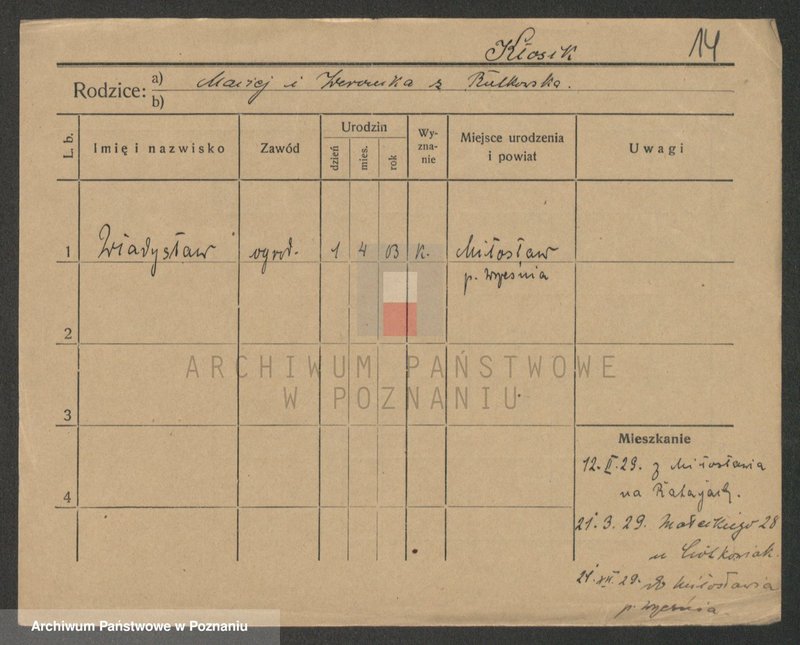 Kłosik
14
Rodzice: a) Maciej i Weronika z Rutkowska.
b)
L. b.
Imię i nazwisko
Zawód
Urodzin
dzień
mies.
rok
Wy-
zna-
nie
Miejsce urodzenia
i powiat
Uwagi
1 Władysław ogrod. 1 4 03 k. Miłosław
p. Września
2
ARCHIWUM PAŃSTWOWE
W POZNANIU
3
4
Mieszkanie
12.II.29. z Miłosławia
na Ratajach.
21.3.29. Małeckiego 28
u
21.XII.29. do Miłosławia
p. Września.
Archiwum Państwowe w Poznaniu